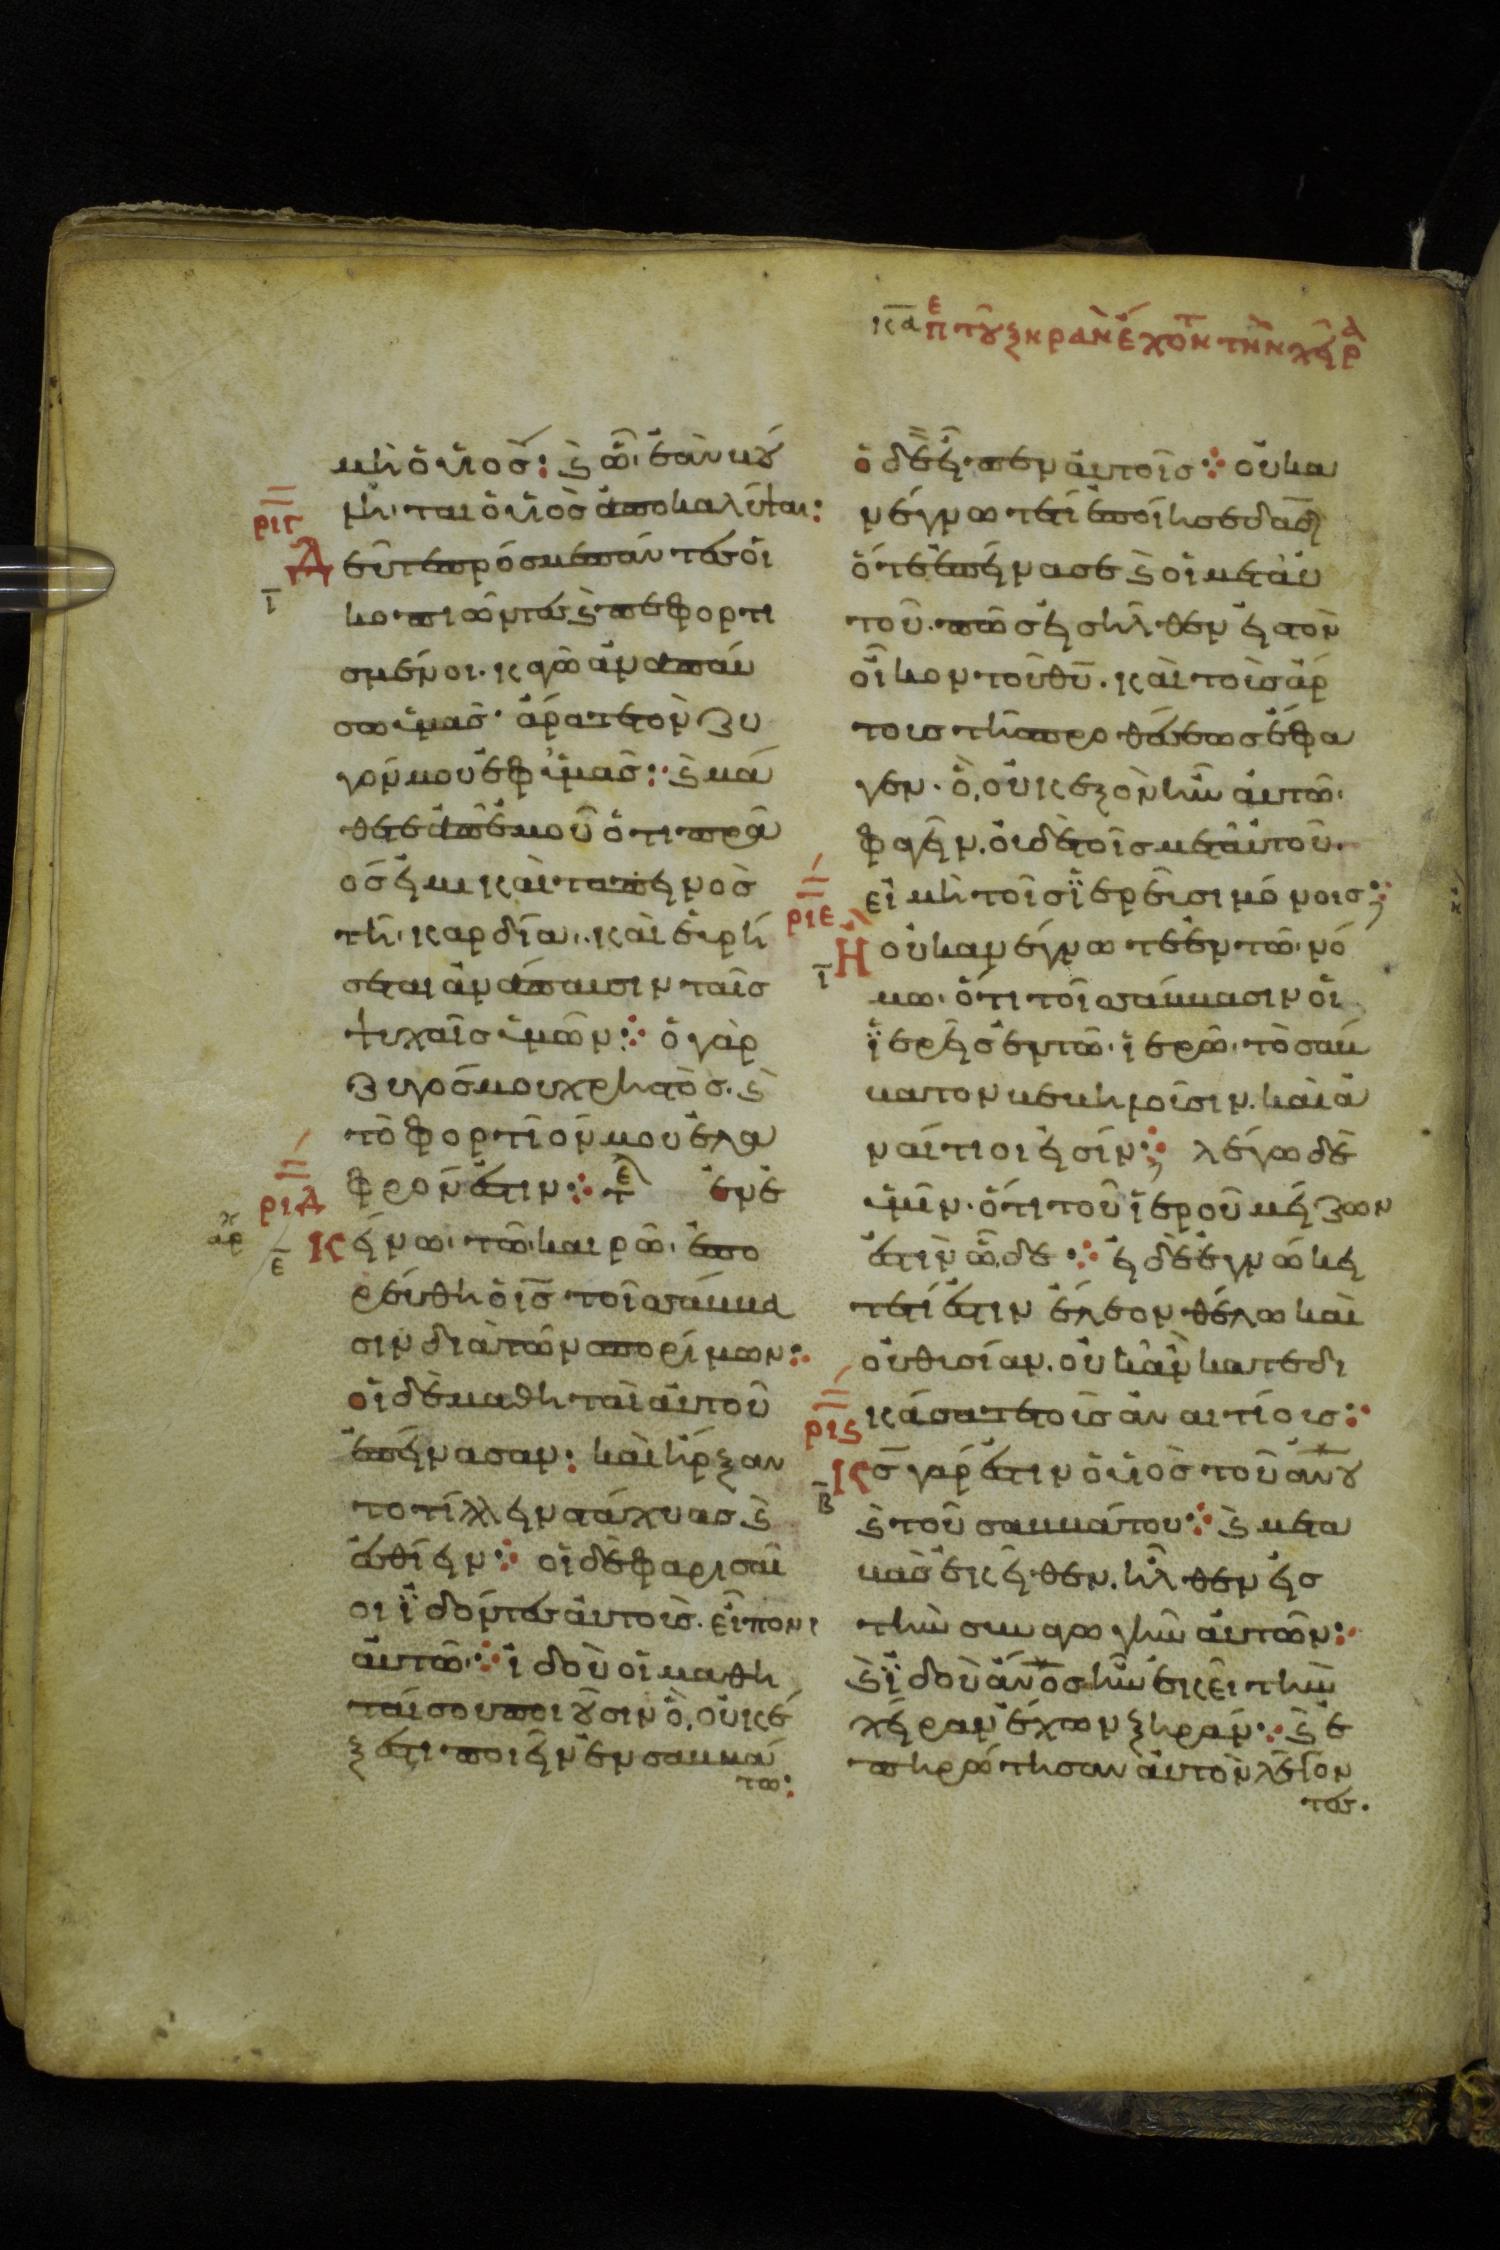 κα πε τοῦ ξηρὰν ἔχοντ τὴν χεῖρα
μὴ ὁ υἱὸσ: ϗ ὧ ἐὰν βού
ληται ὁ υἱὸσ ἀποκαλύψαι:
ριγ
Δεῦτε πρόσ με πάντεσ οἱ
ι
κοπιῶντεσ ϗ πεφορτι
σμένοι. κἀγὼ ἀναπαύ
σω ὑμᾶσ. ἄρατε τὸν ζυ
γόν μου ἐφ ὑμᾶσ: ϗ μά
θετε ἀπ ἐμοῦ ὅτι πρᾶ
όσ εἰμι καὶ ταπεινὸσ
τῆ καρδία. καὶ εὑρή
σεται ἀνάπαυσιν ταῖσ
ψυχαῖσ ὑμῶν: ὁ γὰρ
ζυγόσ μου χρηστὸσ. ϗ
τὸ φορτίον μου ἐλα
φρόν ἐστιν: τε ἐνἐ
ριδ
αρχ
ε
κείνω τῶ καιρῶ ἐπο
ρεύθη ὁ ισ τοῖσ σάββα
σιν διὰ τῶν σπορίμων:
οἱ δὲ μαθηταὶ αὐτοῦ
ἐπείνασαν: καὶ ἤρξαν
το τίλλειν στάχυασ ϗ
ἐσθίειν: οἱ δὲ φαρισαῖ
οι ϊδόντεσ αὐτοὺσ. εἶπον
αὐτῶ: ἰδοὺ οἱ μαθη
ταί σου ποιοῦσιν ὃ οὐκ ἔ
ξεστι ποιεῖν ἐν σαββά
τω:
ὁ δὲ εἶπεν αὐτοῖσ: οὐκ ἀ
νέγνωτε τί ἐποίησε δαδ
ὅτε ἐπείνασε ϗ οἱ μετ αὐ
τοῦ. πῶσ εἰσῆλθεν εἰσ τὸν
οἶκον τοῦ θυ. καὶ τοὺσ ἄρ
τουσ τῆσ προθέσεωσ ἔφα
γεν. ὃ οὐκ ἐξὸν ἦν αὐτῶ
φαγεῖν. οὐδὲ τοῖσ μετ αὐτοῦ.
εἰ μὴ τοῖσ ϊερεῦσι μόνοισ;
ριε
ι
Ἢ οὐκ ἀνέγνωτε ἐν τῶ νό
μω. ὅτι τοῖσ σάββασιν οἱ
ϊερεῖσ ἐν τῶ ἱερῶ τὸ σάβ
βατον βεβηλοῦσιν. καὶ ἀ
ναίτιοι εἰσίν; λέγω δὲ
ὑμῖν. ὅτι τοῦ ἱεροῦ μείζων
ἐστὶν ὧδε: εἰ δὲ ἐγνώκει
τε τί ἐστιν ἔλεον θέλω καὶ
οὐ θυσίαν. οὐκ ἂν κατεδι
κάσατε τοὺσ ἀναιτίουσ:
ριϛ
β
κσ γάρ ἐστιν ὁ υἱὸσ τοῦ ανου
ϗ τοῦ σαββάτου: ϗ μετα
βὰσ ἐκεῖθεν. ἦλθεν εἰσ
τὴν συναγωγὴν αὐτῶν:
ϗ ϊδοὺ ανοσ ἦν ἐκεῖ τὴν
χεῖραν ἔχων ξηράν: ϗ ἐ
πηρώτησαν αὐτὸν λέγον
τεσ.